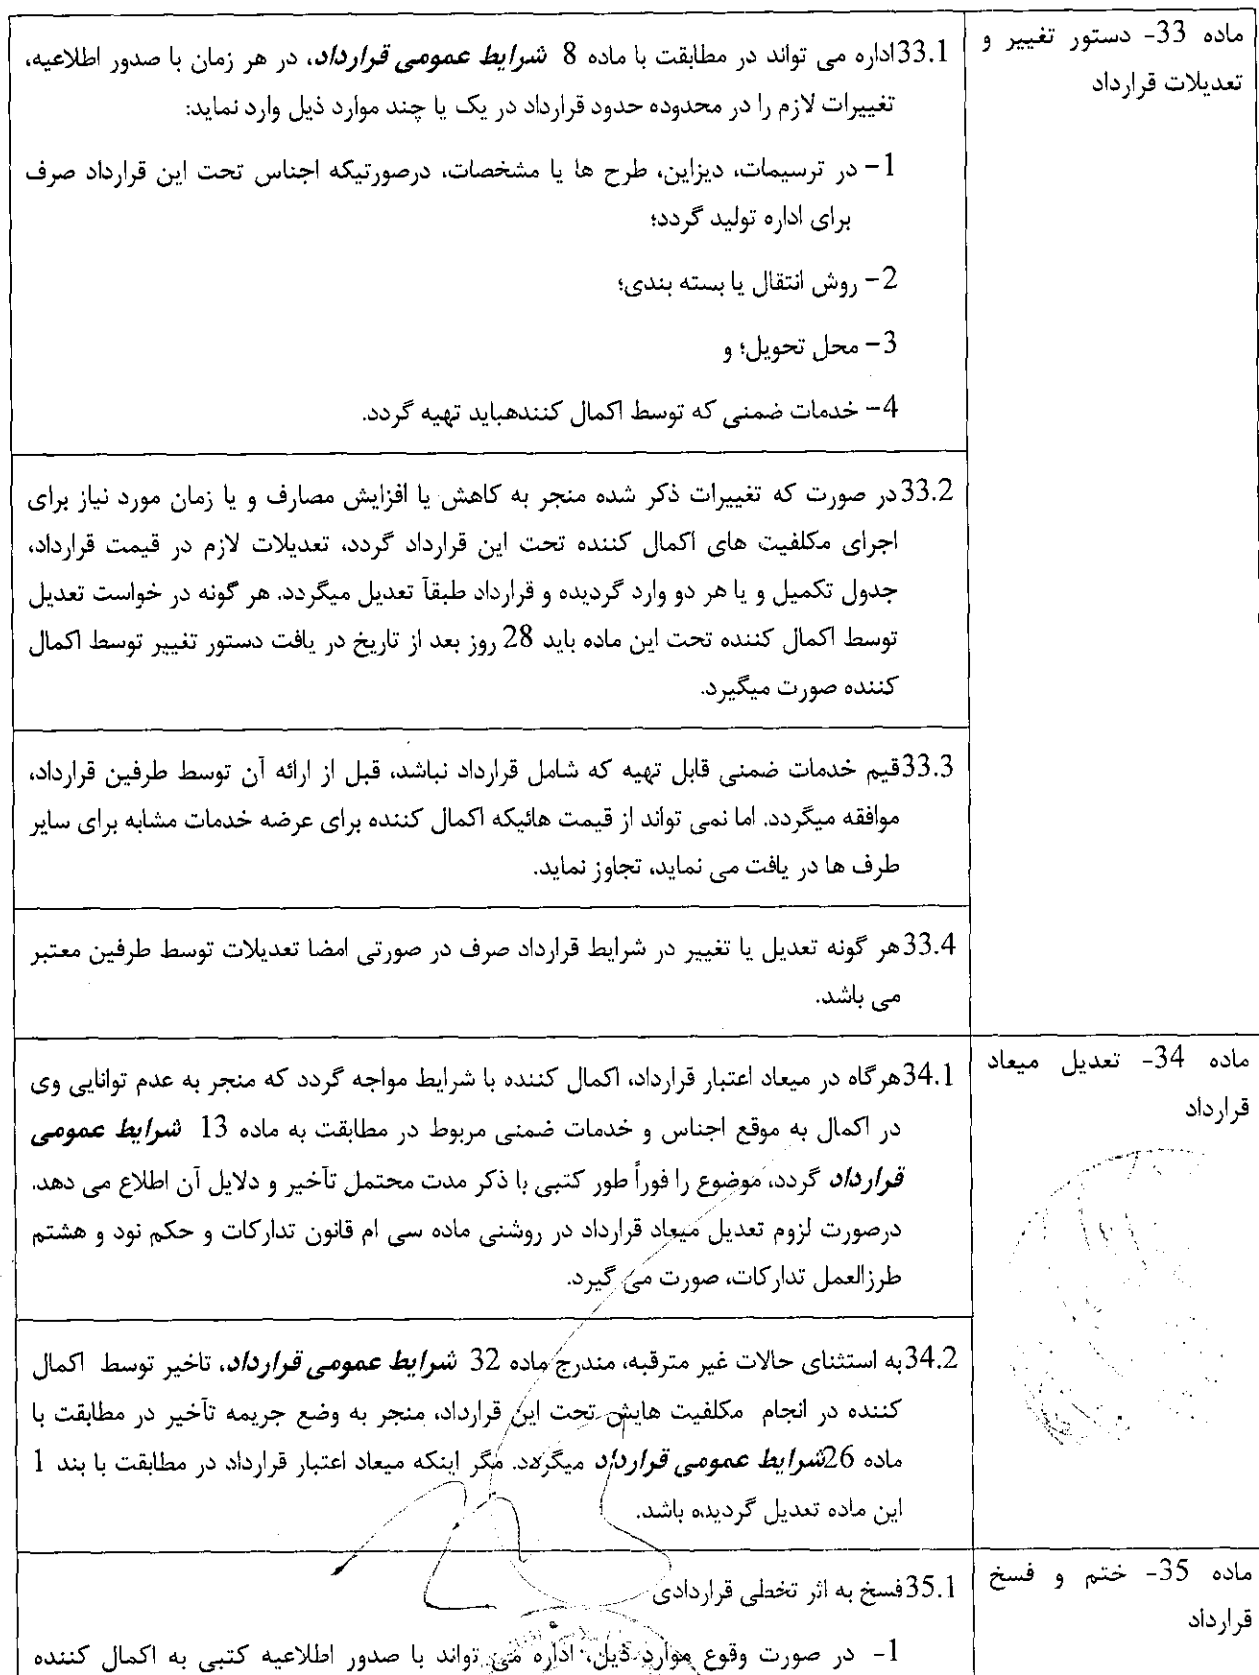 ماده 33- دستور تغییر و
تعدیلات قرارداد
33.1اداره می تواند در مطابقت با ماده 8 شرایط عمومی قرارداد، در هر زمان با صدور اطلاعیه،
تغییرات لازم را در محدوده حدود قرارداد در یک یا چند موارد ذیل وارد نماید:
1- در ترسیمات، دیزاین، طرح ها یا مشخصات، درصورتیکه اجناس تحت این قرارداد صرف
برای اداره تولید گردد؛
2- روش انتقال یا بسته بندی؛
3- محل تحویل؛ و
4- خدمات ضمنی که توسط اکمال کنندهباید تهیه گردد.
33.2در صورت که تغییرات ذکر شده منجر به کاهش یا افزایش مصارف و یا زمان مورد نیاز برای
اجرای مکلفیت های اکمال کننده تحت این قرارداد گردد، تعدیلات لازم در قیمت قرارداد،
جدول تکمیل و یا هر دو وارد گردیده و قرارداد طبقآ تعدیل میگردد. هر گونه در خواست تعدیل
توسط اکمال کننده تحت این ماده باید 28 روز بعد از تاریخ در یافت دستور تغییر توسط اکمال
کننده صورت میگیرد.
33.3قیم خدمات ضمنی قابل تهیه که شامل قرارداد نباشد، قبل از ارائه آن توسط طرفین قرارداد،
موافقه میگردد. اما نمی تواند از قیمت هائیکه اکمال کننده برای عرضه خدمات مشابه برای سایر
طرف ها در یافت می نماید، تجاوز نماید.
33.4هر گونه تعدیل یا تغییر در شرایط قرارداد صرف در صورتی امضا تعدیلات توسط طرفین معتبر
می باشد.
ماده 34- تعدیل میعاد
قرارداد
34.1هرگاه در میعاد اعتبار قرارداد، اکمال کننده با شرایط مواجه گردد که منجر به عدم توانایی وی
در اکمال به موقع اجناس و خدمات ضمنی مربوط در مطابقت به ماده 13 شرایط عمومی
قرارداد گردد، موضوع را فوراً طور کتبی با ذکر مدت محتمل تآخیر و دلایل آن اطلاع می دهد.
درصورت لزوم تعدیل میعاد قرارداد در روشنی ماده سی ام قانون تدارکات و حکم نود و هشتم
طرزالعمل تدارکات، صورت می گیرد.
34.2به استثنای حالات غیر مترقبه، مندرج ماده 32 شرایط عمومی قرارداد، تاخیر توسط اکمال
کننده در انجام مکلفیت هایش تحت این قرارداد، منجر به وضع جریمه تآخیر در مطابقت با
ماده 26شرایط عمومی قرارداد میگردد. مگر اینکه میعاد اعتبار قرارداد در مطابقت با بند 1
این ماده تعدیل گردیده باشد.
ماده 35- ختم و فسخ
قرارداد
35.1فسخ به اثر تخطی قراردادی
1- در صورت وقوع موارد ذیل، اداره می تواند با صدور اطلاعیه کتبی به اکمال کننده